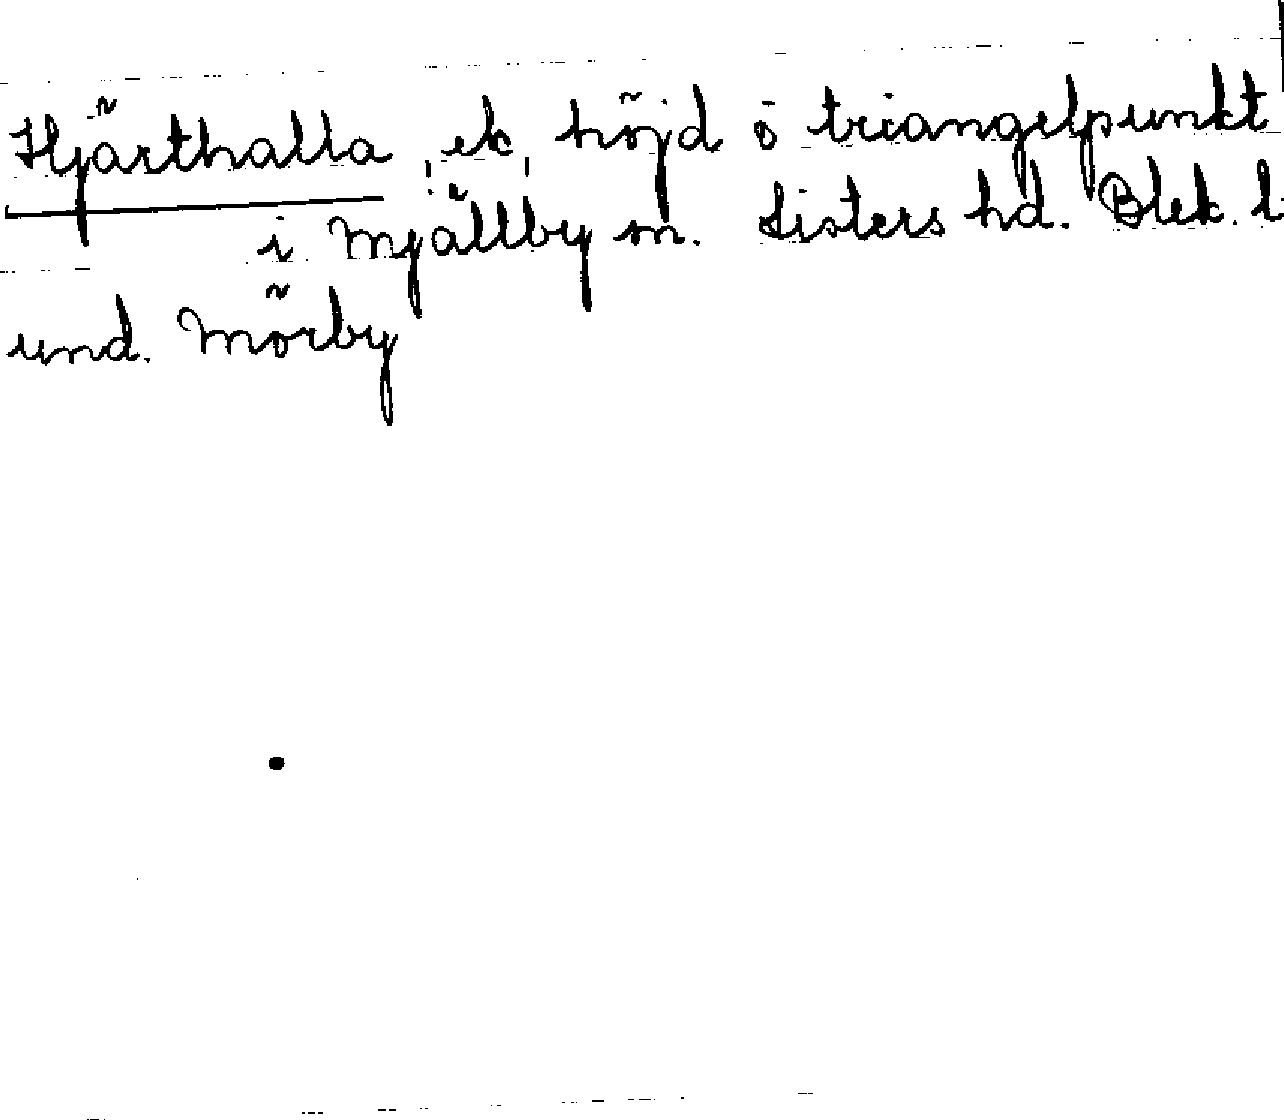 Hjärthalla, ek, höjd o triangelpunkt
i Mjällby sn. Listers hd. Blek. l
und. Mörby